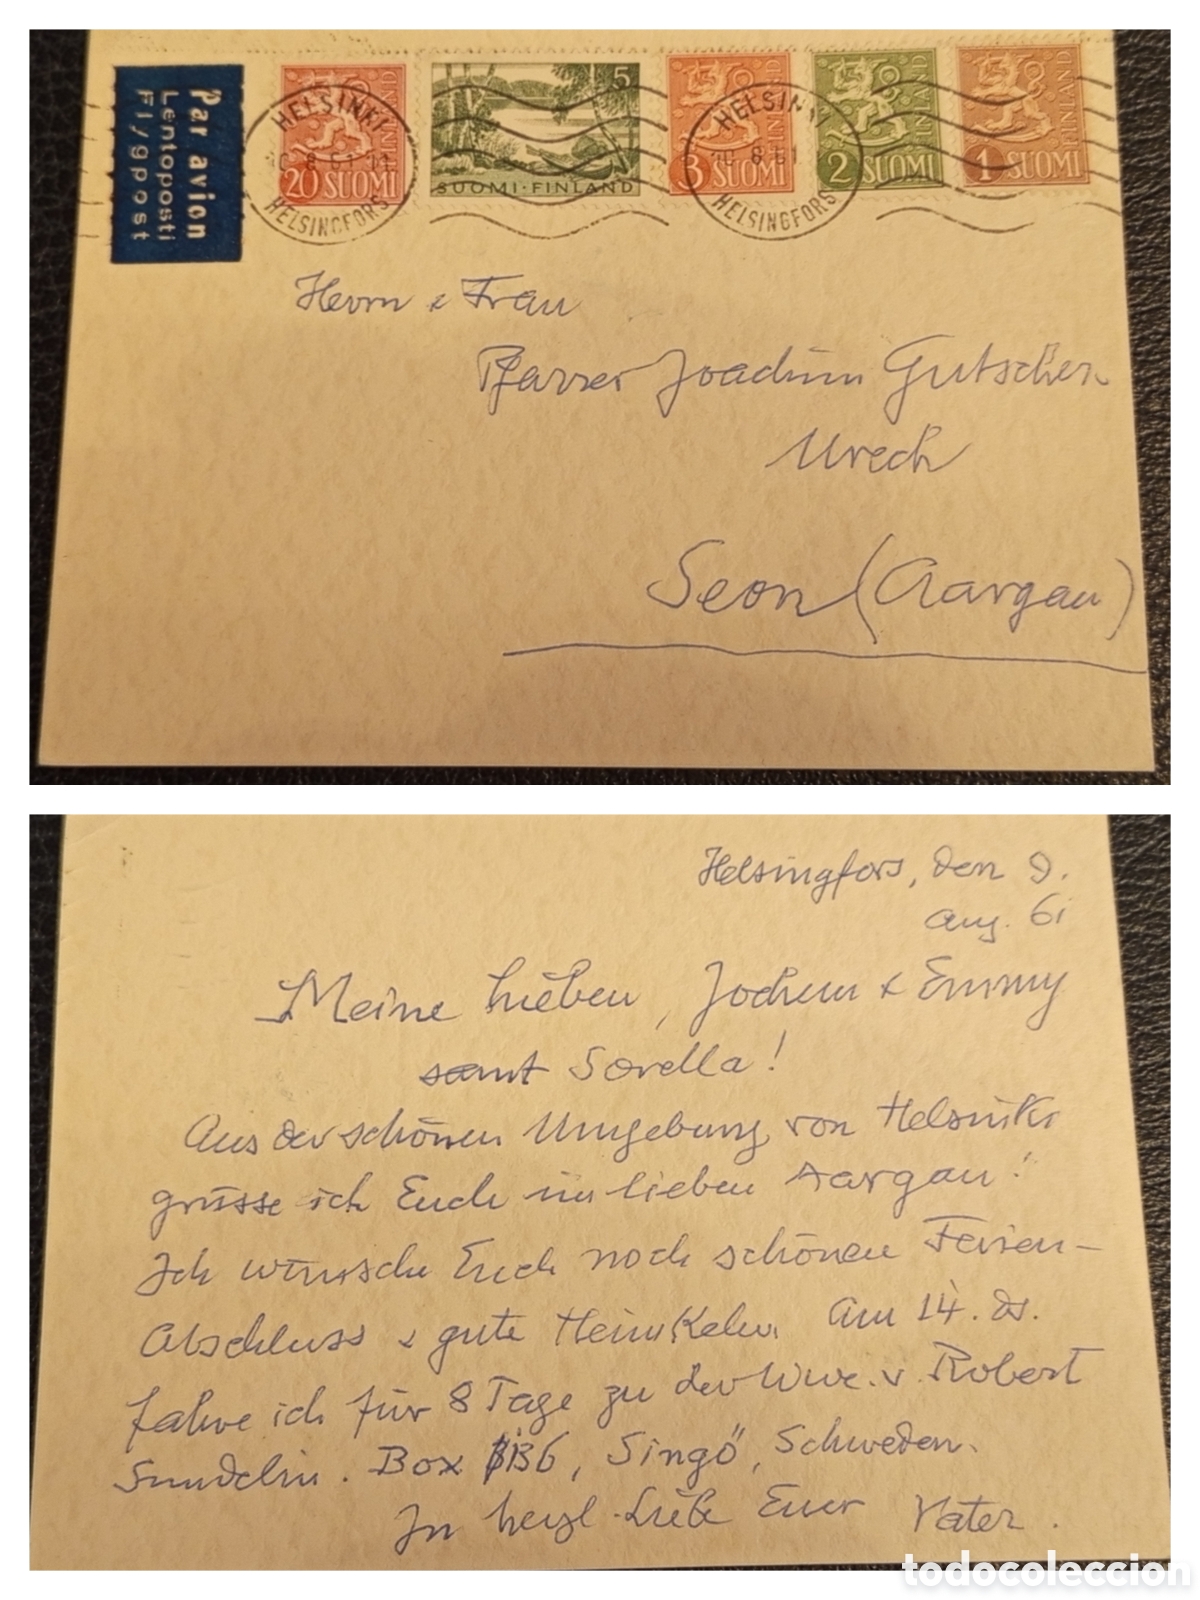 Par avion
Lentoposti
Flygpost
HELSINKI
HELSINGFORS
20 SUOMI
FINLAND
5
SUOMI-FINLAND
3 SUOMI
FINLAND
HELSINKI
10.8.61
HELSINGFORS
2 SUOMI
FINLAND
1 SUOMI
FINLAND
Herrn & Frau
Pfarrer Joachim Gutscher
Urech
Seon (Aargau)
Helsingfors, den 9.
Aug. 61
Meine Lieben, Jochem & Emmy
samt Sorella!
Aus der schönen Umgebung von Helsinki
grüsse ich Euch im lieben Aargau!
Ich wünsche Euch noch schönen Ferien-
Abschluss & gute Heimkehr. Am 14. ds.
fahre ich für 8 Tage zu der Wwe. v. Robert
Sundelin. Box B6, Singö, Schweden.
In herzl. Liebe Euer Vater.
todocoleccion